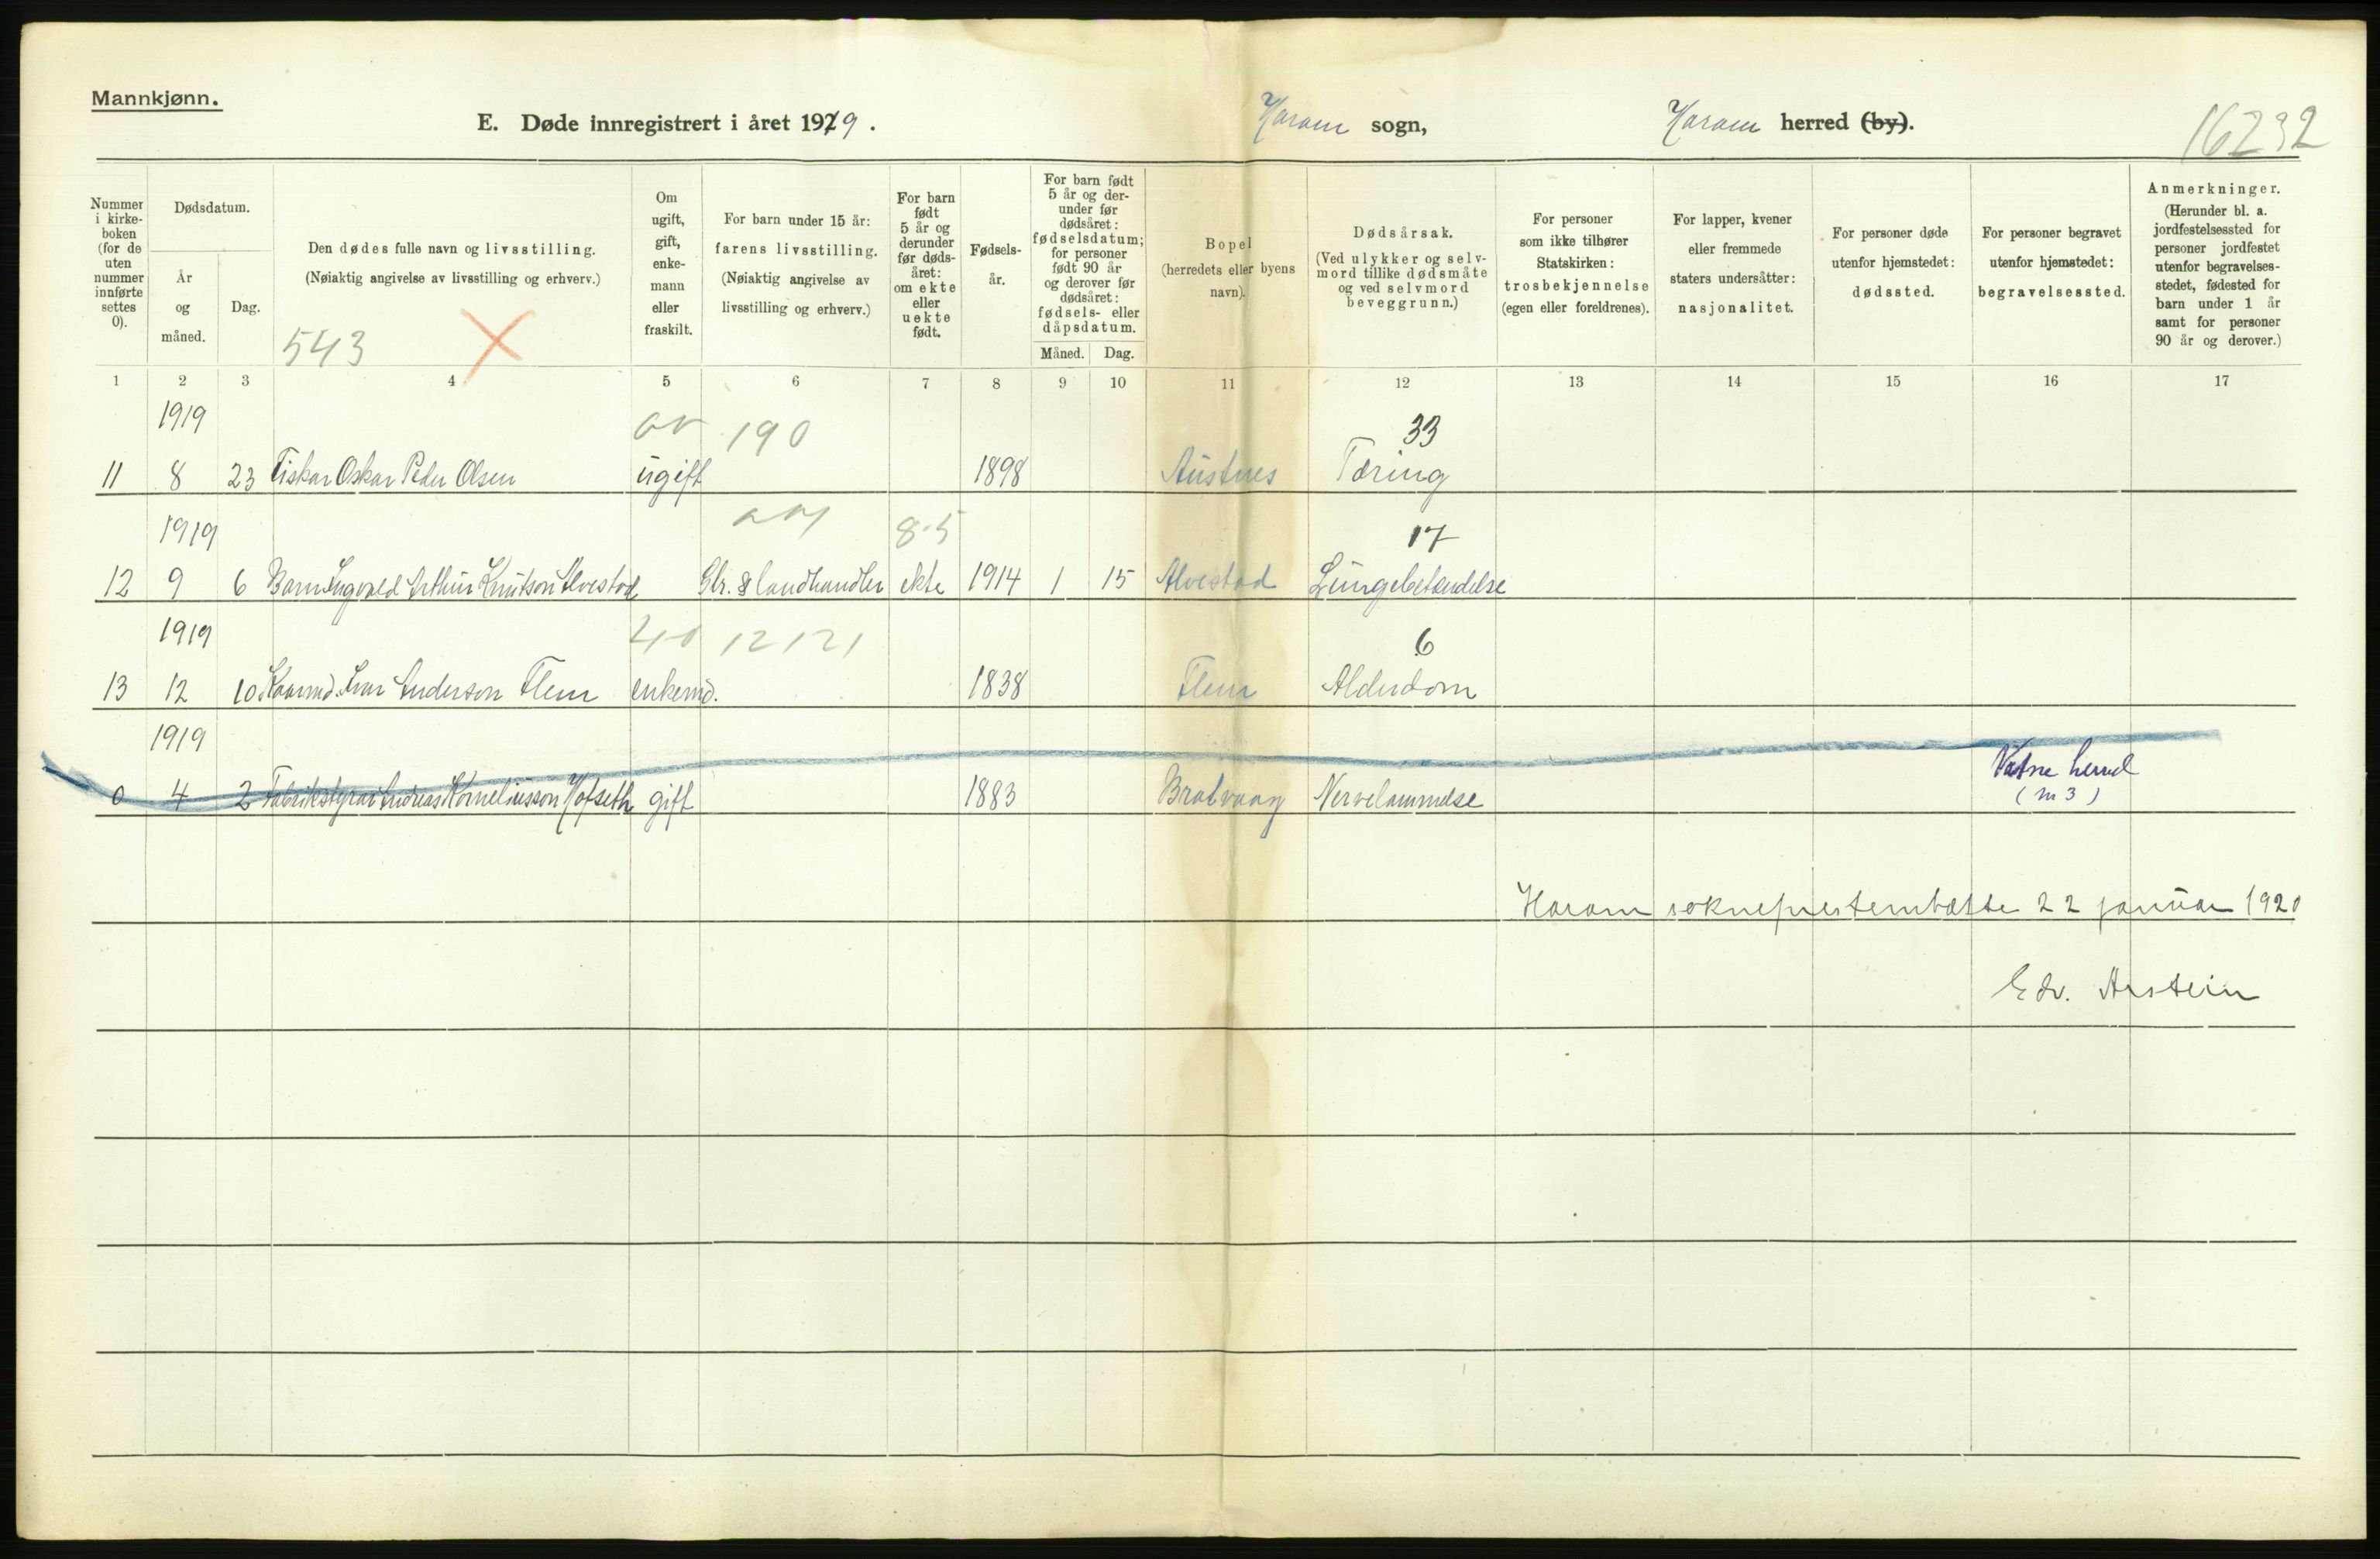 Mannkjønn.
E. Døde innregistrert i året 1919.
Haram sogn,
Haram herred (by).
16232
Nummer i kirke- boken (for de uten nummer innførte settes 0).
Dødsdatum.
År og måned.
Dag.
Den dødes fulle navn og livsstilling.
(Nøiaktig angivelse av livsstilling og erhverv.)
543
Om ugift, gift, enke- mann eller fraskilt.
For barn under 15 år: farens livsstilling.
(Nøiaktig angivelse av livsstilling og erhverv.)
For barn født 5 år og derunder før døds- året: om ekte eller uekte født.
Fødsels- år.
For barn født 5 år og der- under før dødsåret: fødselsdatum; for personer født 90 år og derover før dødsåret: fødsels- eller dåpsdatum.
Måned.
Dag.
Bopel
(herredets eller byens navn).
Dødsårsak.
(Ved ulykker og selv- mord tillike dødsmåte og ved selvmord beveggrunn.)
For personer som ikke tilhører Statskirken: trosbekjennelse (egen eller foreldrenes).
For lapper, kvener eller fremmede staters undersåtter: nasjonalitet.
For personer døde utenfor hjemstedet: dødssted.
For personer begravet utenfor hjemstedet: begravelsessted.
Anmerkninger.
(Herunder bl. a. jordfestelsessted for personer jordfestet utenfor begravelses- stedet, fødested for barn under 1 år samt for personer 90 år og derover.)
1 2 3 4 5 6 7 8 9 10 11 12 13 14 15 16 17
1919 190 33
11 8 23 Fiskar Oskar Peder Olsen ugift 1898 Austnes Tæring
1919 8-5 17
12 9 6 Barn Ingvald Arthur Knutson Alvestad Gbr. & landhandler ekte 1914 1 15 Alvestad Lungebetændelse
1919 12121 6
13 12 10 Kaarmd. Ivar Anderson Flem enkemd. 1838 Flem Alderdom
1919
0 4 2 Fabrikstyrar Andreas Korneliusson Hofseth gift 1883 Bratvaag Nervelammelse Vatne herred
(M 3)
Haram sokneprestembætte 22 januar 1920
Edv. Arstein